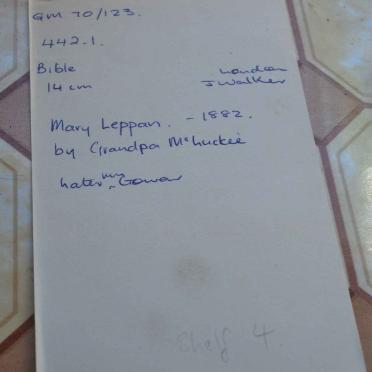 GM 70/123.
442.1.
Bible London
14 cm J Walker
Mary Leppan. - 1882.
by Grandpa McLuckie
later Mrs Gowar
Shelf 4.